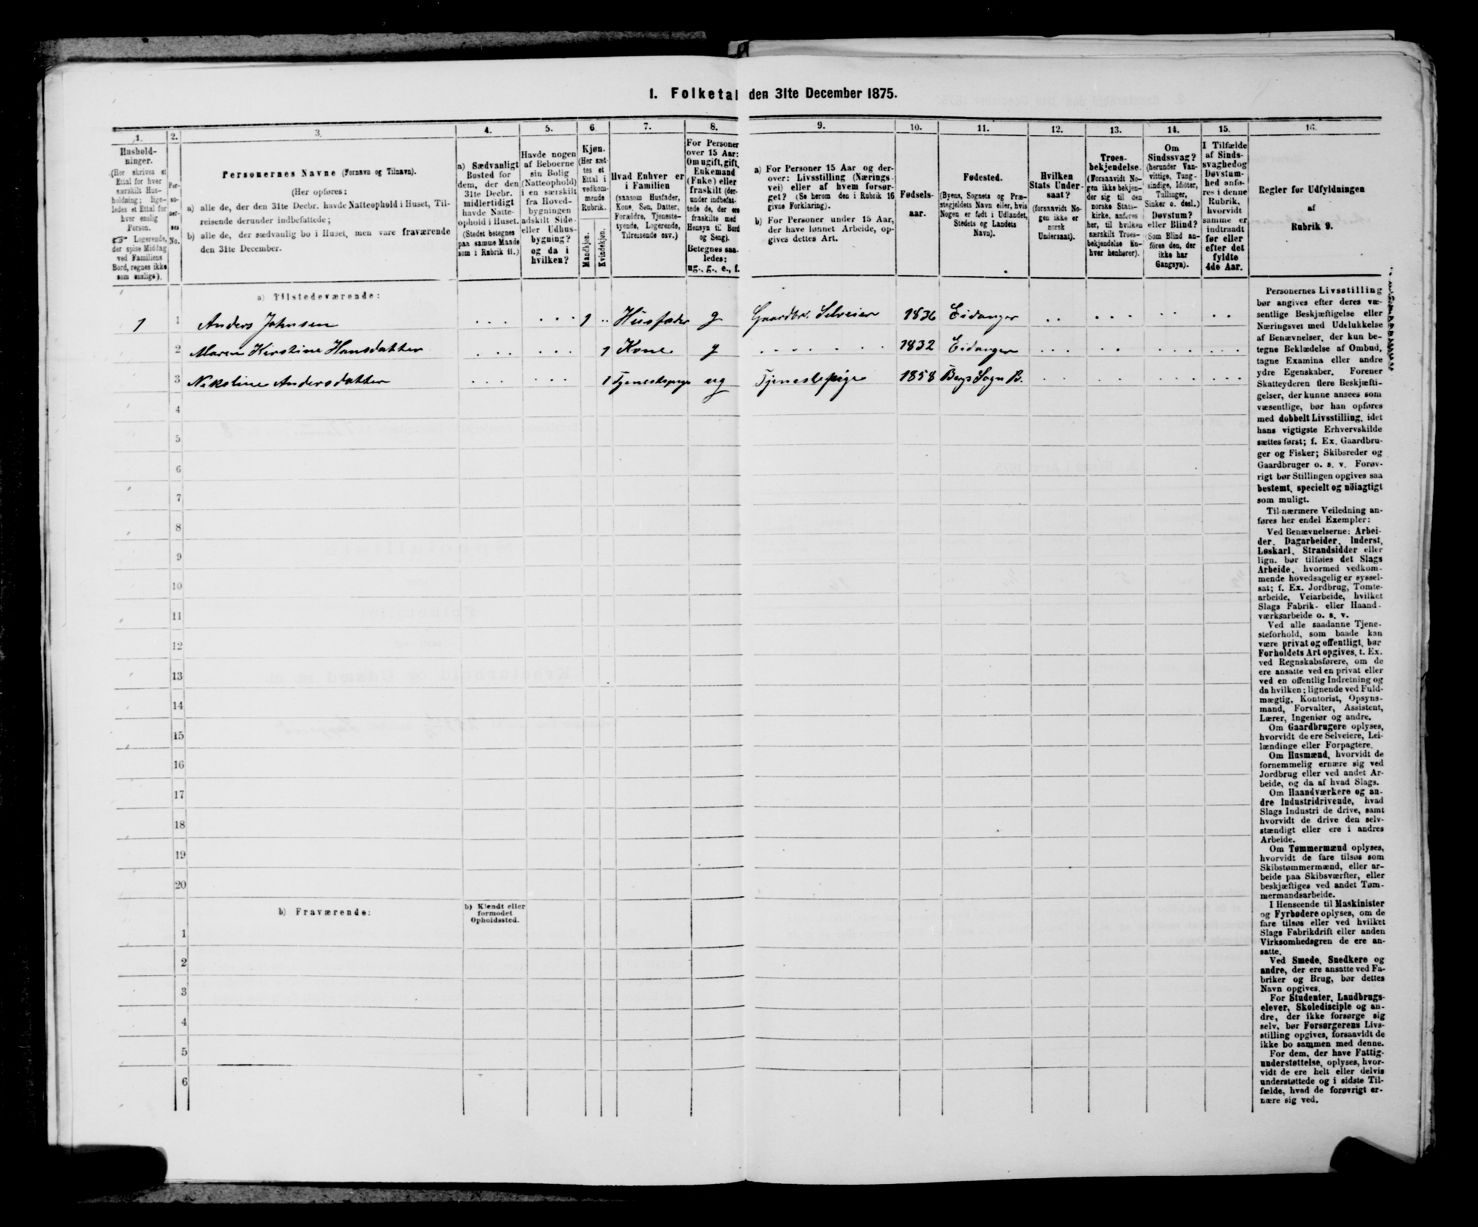 1. Folketal den 31te December 1875.
1.
2.
3.
4.
5.
6
7.
8.
9.
10.
11.
12.
13.
14.
15.
16.
Hushold-
ninger.
(Her skrives et
Ettal for hver
særskilt Hus-
holdning; lige-
ledes et Ettal for
hver enslig
Person.
☞ Logerende,
der spise Middag
ved Familiens
Bord, regnes ikke
som enslige).
Per-
so-
ner-
nes
No.
Personernes Navne (Fornavn og Tilnavn).
(Her opføres:
a) alle de, der den 31te Decbr. havde Natteophold i Huset, Til-
reisende derunder indbefattede;
b) alle de, der sædvanlig bo i Huset, men vare fraværende
den 31te December.
a) Sædvanligt
Bosted for
dem, der den
31te Decbr.
midlertidigt
havde Natte-
ophold i Huset.
(Stedet betegnes
paa samme Maade
som i Rubrik 11.)
Havde nogen
af Beboerne
sin Bolig
(Natteophold)
i en særskilt
fra Hoved-
bygningen
adskilt Side-
eller Udhus-
bygning?
og da i
hvilken?
Kjøn.
(Her sæt-
tes et
Ettal i
vedkom-
mende
Rubrik.
Mandkjøn.
Kvindekjøn.
Hvad Enhver er
i Familien
(saasom Husfader,
Kone, Søn, Datter,
Forældre, Tjeneste-
tyende, Logerende,
Tilreisende osv.)
For Personer
over 15 Aar:
Om ugift, gift,
Enkemand
(Enke) eller
fraskilt (der-
under indbefat-
tede de, der ere
fraskilte med
Hensyn til Bord
og Seng).
Betegnes saa-
ledes:
ug., g., e., f.
a) For Personer 15 Aar og der-
over: Livsstilling (Nærings-
vei) eller af hvem forsør-
get? (Se herom den i Rubrik 16
givne Forklaring).
b) For Personer under 15 Aar,
der have lønnet Arbeide, op-
gives dettes Art.
Fødsels-
aar.
Fødested.
(Byens, Sognets og Præ-
stegjeldets Navn eller, hvis
Nogen er født i Udlandet,
Stedets og Landets
Navn).
Hvilken
Stats Under-
saat?
(forsaavidt No-
gen ikke er
norsk
Undersaat).
Troes-
bekjendelse.
(Forsaavidt No-
gen ikke bekjen-
der sig til den
norske Stats-
kirke, anføres
her, til hvilken
særskilt Troes-
bekjendelse En-
hver henhører).
Om
Sindssvag?
(herunder Van-
vittige, Tung-
sindige, Idioter,
Tullinger,
Sinker o. desl.)
Døvstum?
eller Blind?
(Som Blind an-
føres den, der
ikke har
Gangsyn).
I Tilfælde
af Sinds-
svaghed og
Døvstum-
hed anfø-
res i denne
Rubrik,
hvorvidt
samme er
indtraadt
før eller
efter det
fyldte
4de Aar.
Regler for Udfyldningen
af
Rubrik 9.
a) Tilstedeværende:
1 1 Anders Johnsen 1 Husfader g Gaardbr. Selveier 1836 Eidanger
2 Maren Kirstine Hansdatter 1 Kone g 1832 Eidanger
3 Nikoline Andersdatter 1 Tjenestepige ug Tjenestepige 1858 Bergs Sogn B.
4
5
6
7
8
9
10
11
12
13
14
15
16
17
18
19
20
b) Fraværende:
b) Kjendt eller
formodet
Opholdssted.
1
2
3
4
5
6
Personernes Livsstilling
bør angives efter deres væ-
sentlige Beskjæftigelse eller
Næringsvei med Udelukkelse
af Benævnelser, der kun be-
tegne Beklædelse af Ombud,
tagne Examina eller andre
ydre Egenskaber. Forener
Skatteyderen flere Beskjæfti-
gelser, der kunne ansees som
væsentlige, bør han opføres
med dobbelt Livsstilling, idet
hans vigtigste Erhvervskilde
sættes først; f. Ex. Gaardbru-
ger og Fisker; Skibsreder og
Gaardbruger o. s. v. Forøv-
rigt bør Stillingen opgives saa
bestemt, specielt og nøiagtigt
som muligt.
Til nærmere Veiledning an-
føres her endel Exempler:
Ved Benævnelserne: Arbei-
der, Dagarbeider, Inderst,
Løskarl, Strandsidder eller
lign. bør tilføies det Slags
Arbeide, hvormed vedkom-
mende hovedsagelig er syssel-
sat; f. Ex. Jordbrug, Tomte-
arbeide, Veiarbeide, hvilket
Slags Fabrik- eller Haand-
værksarbeide o. s. v.
Ved alle saadanne Tjene-
steforhold, som baade kan
være privat og offentligt, bør
Forholdets Art opgives, t. Ex.
ved Regnskabsførere, om de
ere ansatte ved en privat eller
ved en offentlig Indretning og
da hvilken; lignende ved Fuld-
mægtig, Kontorist, Opsyns-
mand, Forvalter, Assistent,
Lærer, Ingeniør og andre.
Om Gaardbrugere oplyses,
hvorvidt de ere Selveiere, Lei-
lændinge eller Forpagtere.
Om Husmænd, hvorvidt de
fornemmelig ernære sig ved
Jordbrug eller ved andet Ar-
beide, og da af hvad Slags.
Om Haandværkere og an-
dre Industridrivende, hvad
Slags Industri de drive, samt
hvorvidt de drive den selv-
stændigt eller ere i andres
Arbeide.
Om Tømmermænd oplyses,
hvorvidt de fare tilsøs som
Skibstømmermænd, eller ar-
beide paa Skibsværfter, eller
beskjæftiges ved andet Tøm-
mermandsarbeide.
I Henseende til Maskinister
og Fyrbødere oplyses, om de
fare tilsøs eller ved hvilket
Slags Fabrikdrift eller anden
Virksomhedsgren de ere an-
satte.
Ved Smede, Snedkere og
andre, der ere ansatte ved Fa-
briker og Brug, bør dettes
Navn opgives.
For Studenter, Landbrugs-
elever, Skoledisciple og an-
dre, der ikke forsørge sig
selv, bør Forsørgerens Livs-
stilling opgives, forsaavidt de
ikke bo sammen med denne.
For dem, der have Fattig-
understøttelse, oplyses, hvor-
vidt de ere helt eller delvis
understøttede og i sidste Til-
fælde, hvad de forøvrigt er-
nære sig ved.